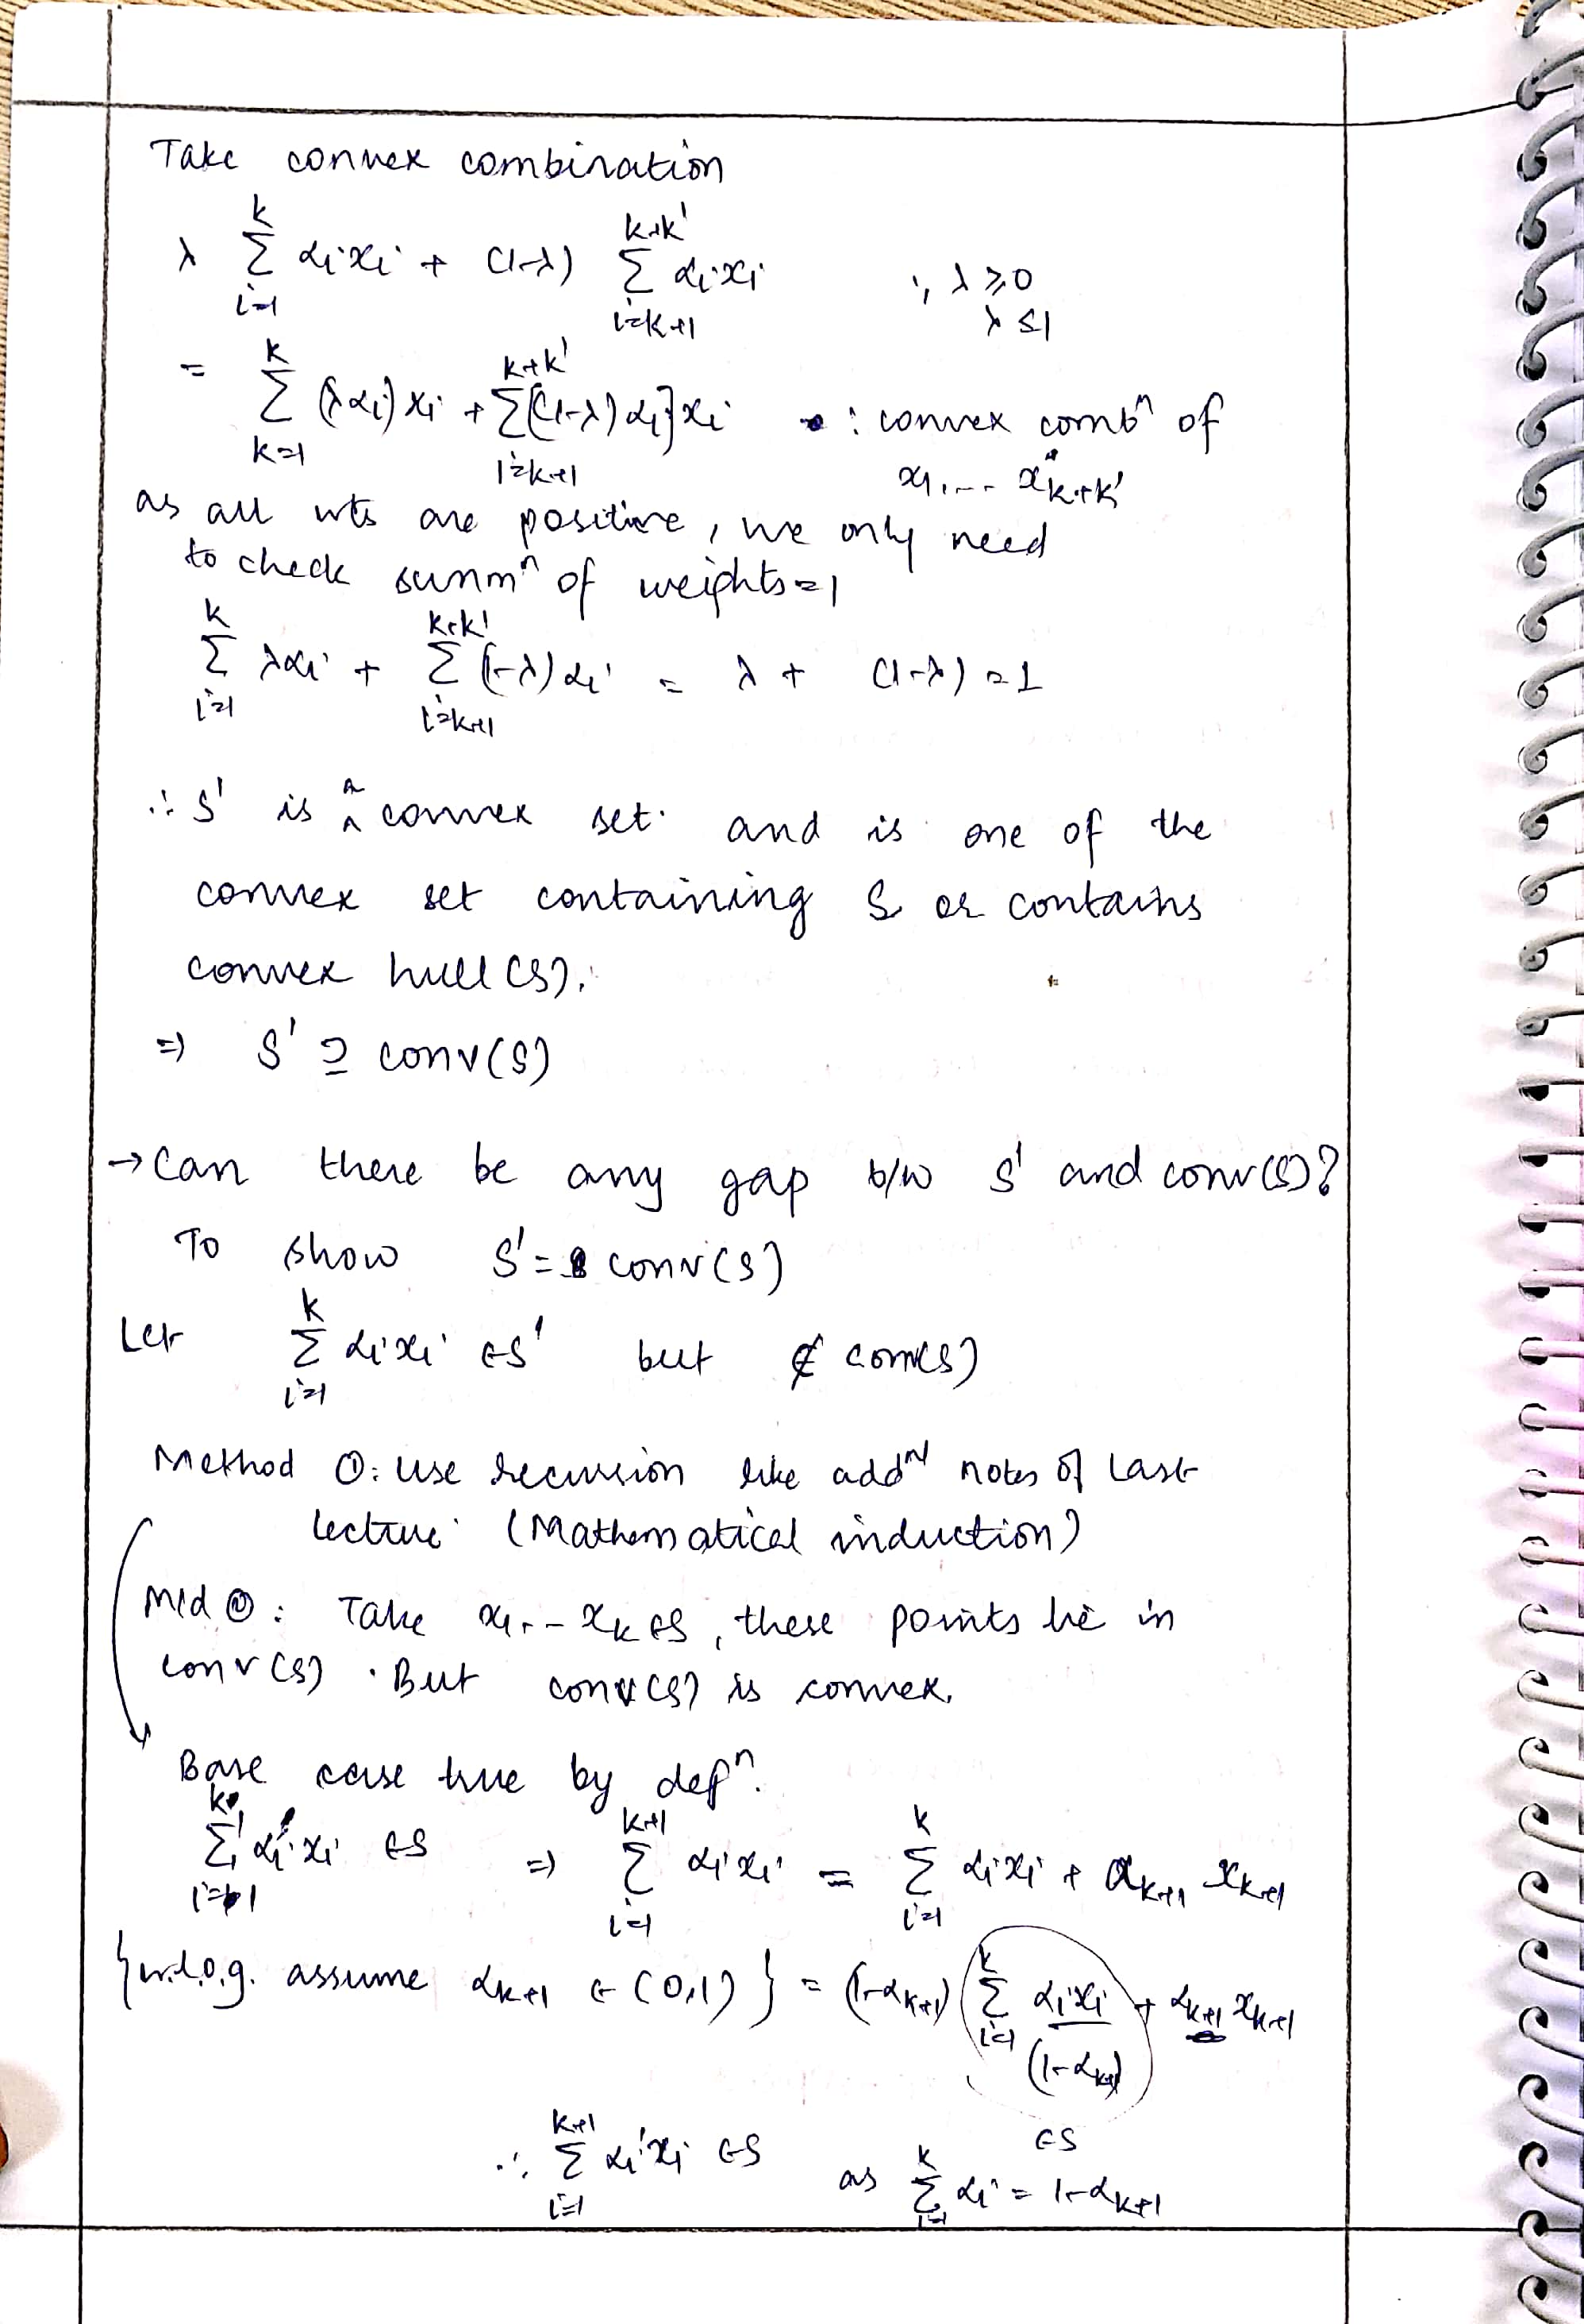 Take convex combination
λ Σ_{i=1}^{k} αixi + (1-λ) Σ_{i=k+1}^{k+k'} αixi , λ ≥ 0
λ ≤ 1
= Σ_{k=1}^{k} (λαi) xi + Σ_{i=k+1}^{k+k'} [(1-λ) αi] xi : convex combⁿ of
x1, -- xk+k'
as all wts are positive, we only need
to check summⁿ of weights = 1
Σ_{i=1}^{k} λαi + Σ_{i=k+1}^{k+k'} (1-λ) αi = λ + (1-λ) = 1
∴ S' is a convex set. and is one of the
convex set containing S or contains
convex hull (S).
⇒ S' ⊇ conv(S)
→ Can there be any gap b/w S' and conv(S)?
To show S' = conv(S)
Let Σ_{i=1}^{k} αixi ∈ S' but ∉ conv(S)
Method ①: Use recursion like addⁿ notes of Last
lecture. (Mathematical induction)
Mtd ②: Take x1, -- xk ∈ S, these points lie in
conv(S). But conv(S) is convex.
Base case true by defⁿ.
Σ_{i=1}^{k} αi'xi ∈ S ⇒ Σ_{i=1}^{k+1} αixi = Σ_{i=1}^{k} αixi + αk+1 xk+1
{w.l.o.g. assume αk+1 ∈ (0,1)} = (1-αk+1) (Σ_{i=1}^{k} αixi/(1-αk+1)) + αk+1 xk+1
∈ S
∴ Σ_{i=1}^{k+1} αi'xi ∈ S as Σ_{i=1}^{k} αi = 1-αk+1